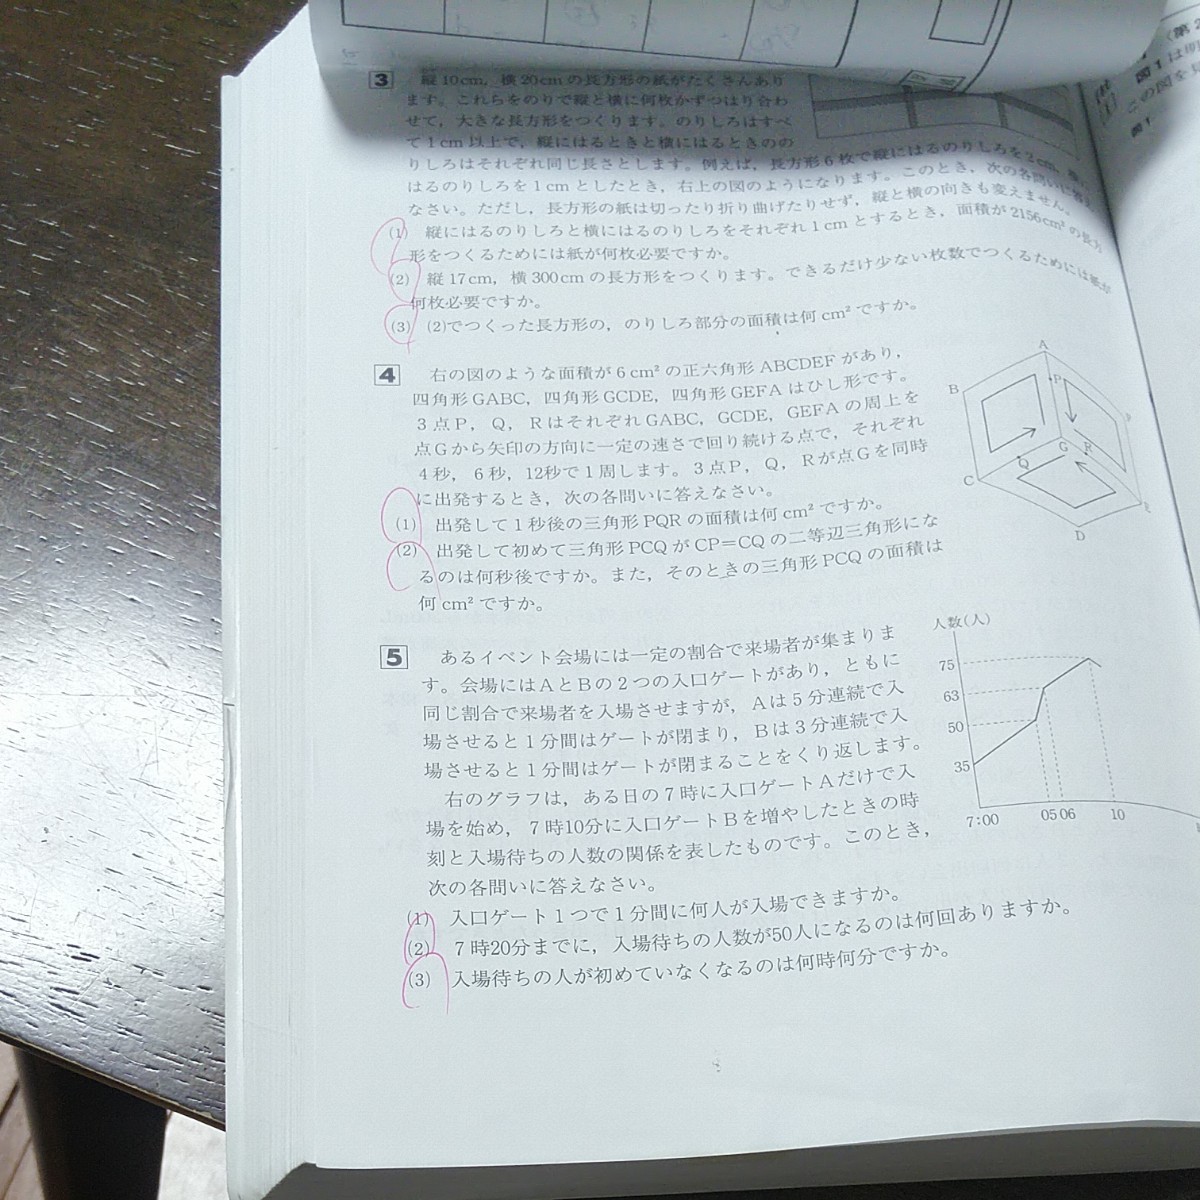 3 縦10cm，横20cmの長方形の紙がたくさんあり
ます。これらをのりで縦と横に何枚かずつはり合わ
せて，大きな長方形をつくります。のりしろはすべ
て1cm以上で，縦にはるときと横にはるときのの
りしろはそれぞれ同じ長さとします。例えば，長方形6枚で縦にはるのりしろを2cm，
はるのりしろを1cmとしたとき，右上の図のようになります。このとき，次の各問いに
なさい。ただし，長方形の紙は切ったり折り曲げたりせず，縦と横の向きも変えません。
(1) 縦にはるのりしろと横にはるのりしろをそれぞれ1cmとするとき，面積が2156cm²の長方
形をつくるためには紙が何枚必要ですか。
(2) 縦17cm，横300cmの長方形をつくります。できるだけ少ない枚数でつくるためには紙が
何枚必要ですか。
(3) (2)でつくった長方形の，のりしろ部分の面積は何cm²ですか。
4 右の図のような面積が6cm²の正六角形ABCDEFがあり，
四角形GABC，四角形GCDE，四角形GEFAはひし形です。
3点P，Q，RはそれぞれGABC，GCDE，GEFAの周上を
点Gから矢印の方向に一定の速さで回り続ける点で，それぞれ
4秒，6秒，12秒で1周します。3点P，Q，Rが点Gを同時
に出発するとき，次の各問いに答えなさい。
(1) 出発して1秒後の三角形PQRの面積は何cm²ですか。
(2) 出発して初めて三角形PCQがCP=CQの二等辺三角形にな
るのは何秒後ですか。また，そのときの三角形PCQの面積は
何cm²ですか。
A
B
P
G
R
Q
C
E
D
5 あるイベント会場には一定の割合で来場者が集まりま
す。会場にはAとBの2つの入口ゲートがあり，ともに
同じ割合で来場者を入場させますが，Aは5分連続で入
場させると1分間はゲートが閉まり，Bは3分連続で入
場させると1分間はゲートが閉まることをくり返します。
右のグラフは，ある日の7時に入口ゲートAだけで入
場を始め，7時10分に入口ゲートBを増やしたときの時
刻と入場待ちの人数の関係を表したものです。このとき，
次の各問いに答えなさい。
人数(人)
75
63
50
35
7:00 05 06 10
(1) 入口ゲート1つで1分間に何人が入場できますか。
(2) 7時20分までに，入場待ちの人数が50人になるのは何回ありますか。
(3) 入場待ちの人が初めていなくなるのは何時何分ですか。
(第2
図1は明
この図を見
図1